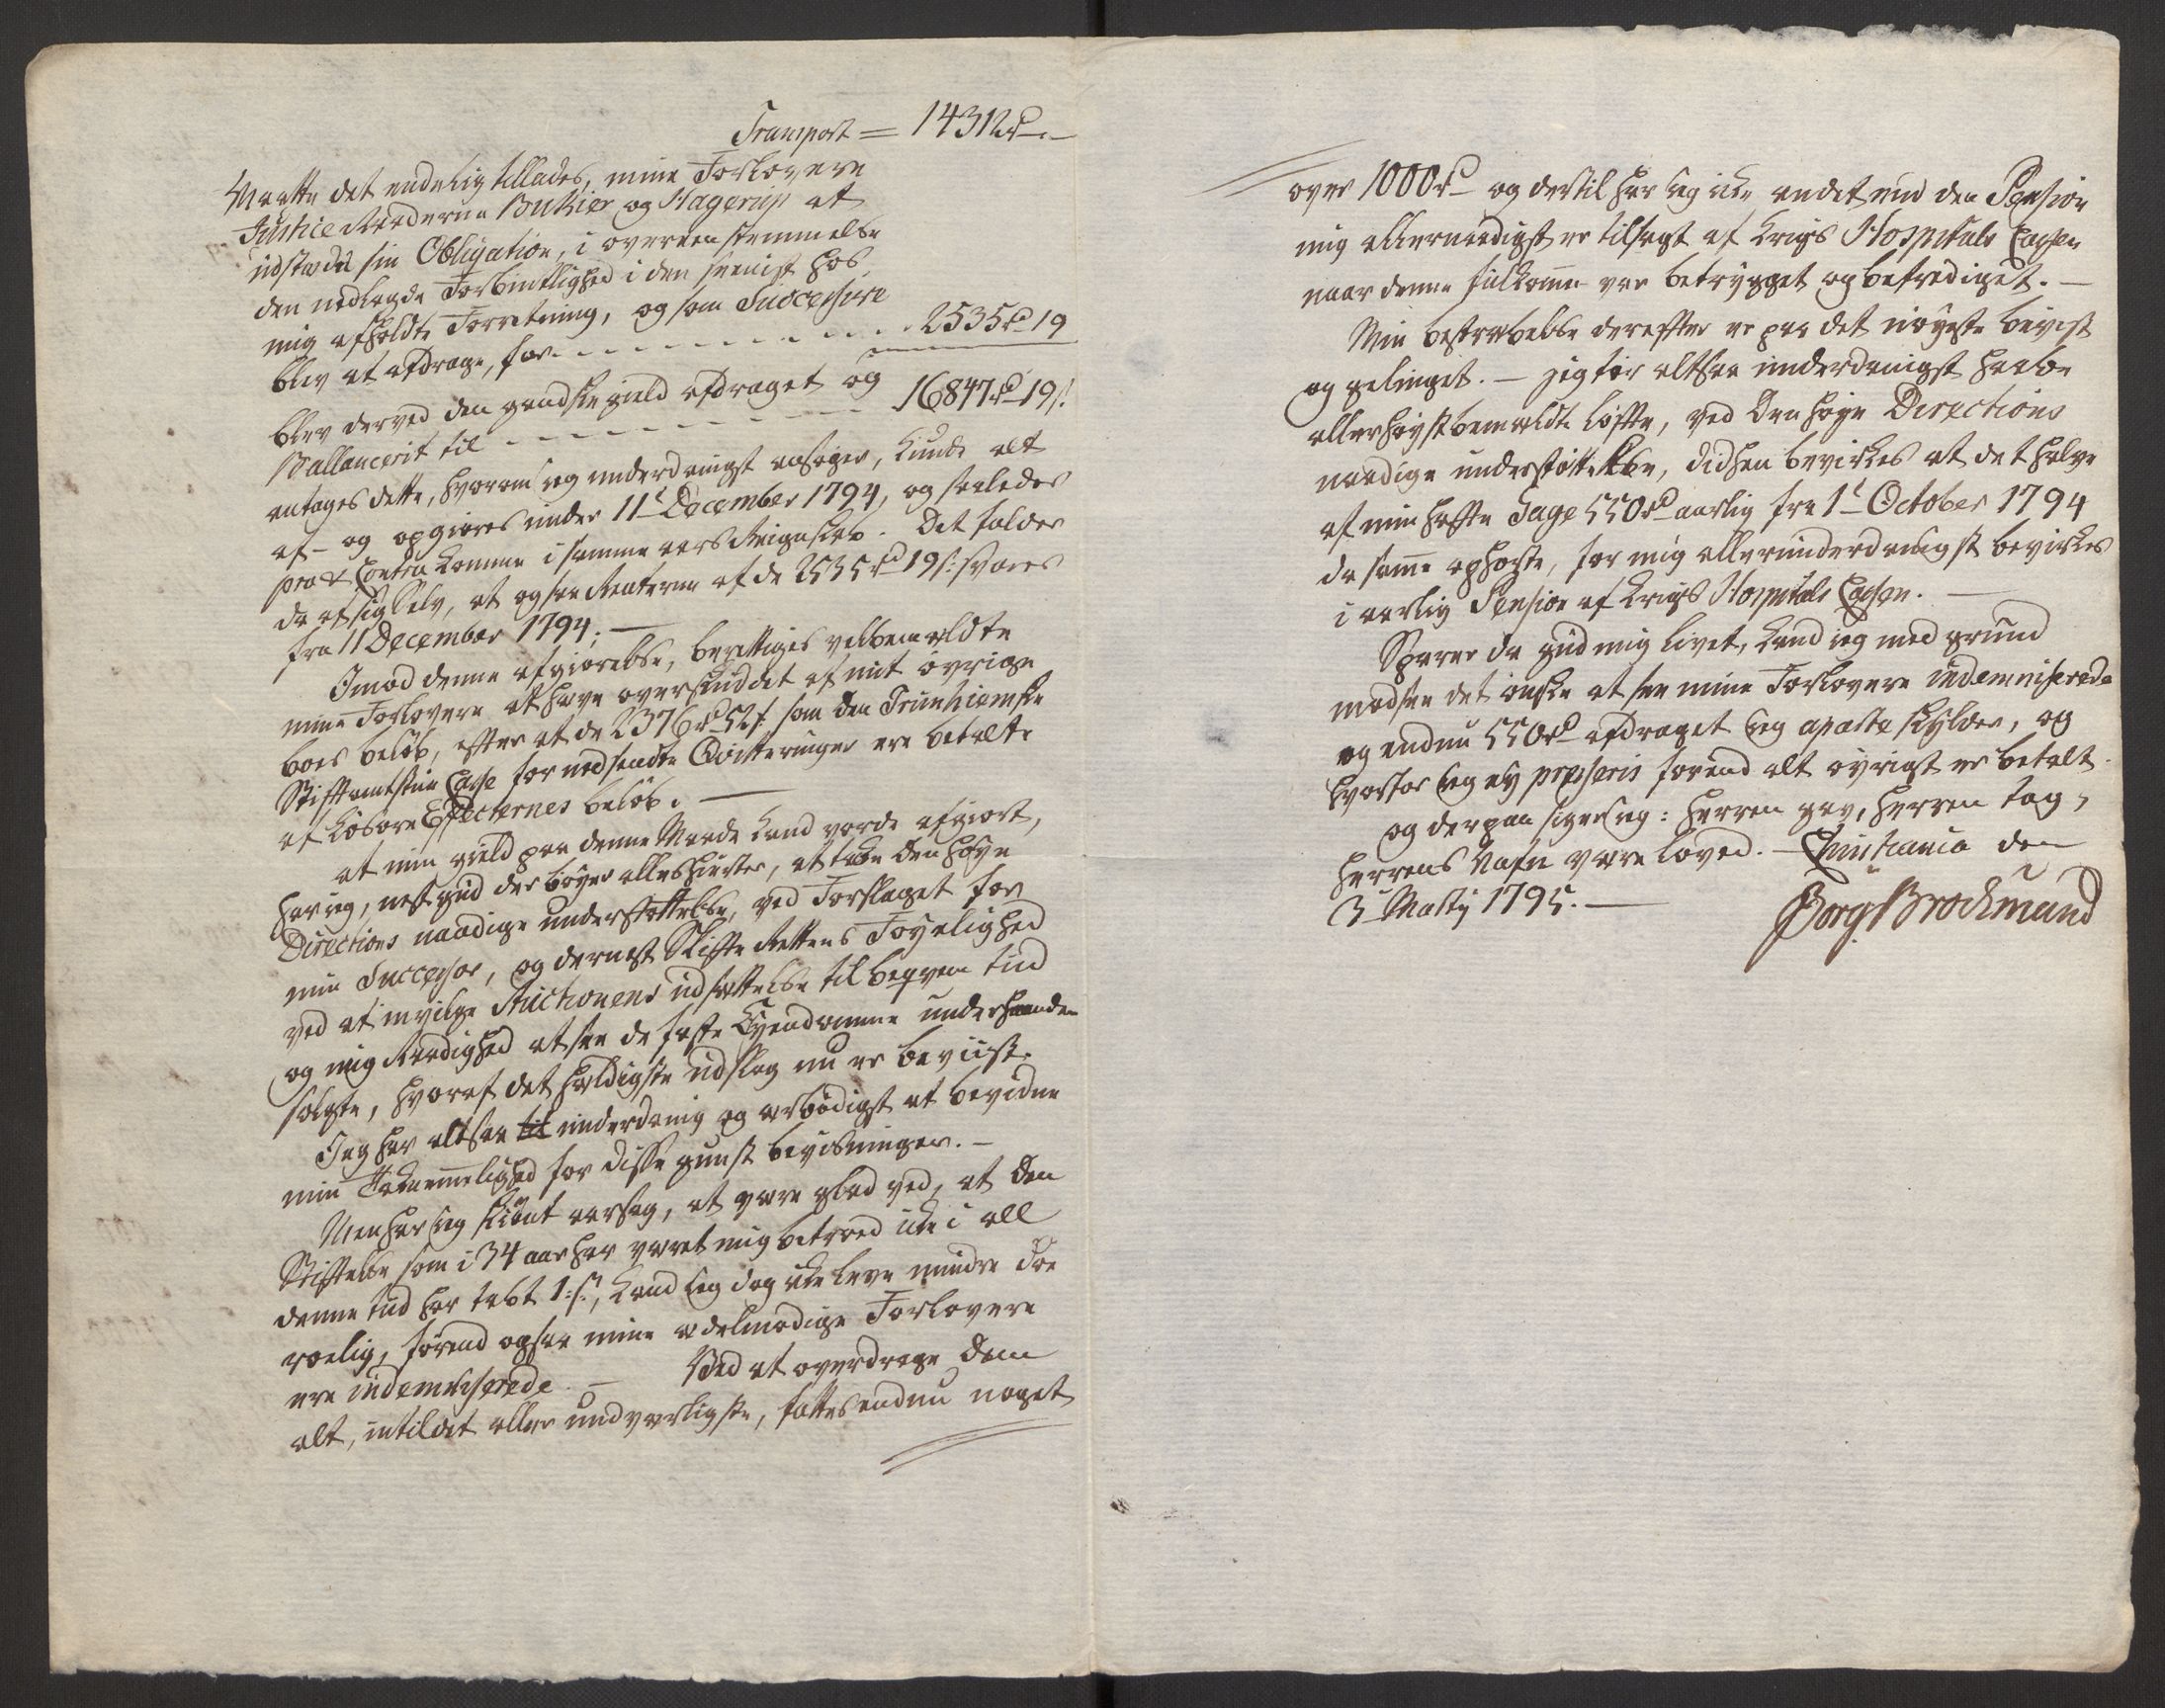 Transport = 14312rd.-
Maatte det endelig tillades, mine Forlovere
Justice Raaderne Bukier og Hagerup at
udstæde sin Obligation, i overeensstemmelse
den nedlagde Forbindtlighed i den seenist hos
mig afholdte Forretning, og som Successive
blev at afdrage, for - - - - - - - - - 2535rd 19
blev derved den gandske gield afdraget og
Ballancerit til - - - - - - - - 16847rd 19s.
antages dette, hvorom ieg underdanigst ansøger, kunde alt
af- og opgiøres under 11t December 1794, og saaledes
pro & Contra komme i samme aars Reignskab. Det falder
da af sig selv, at ogsaa Renterne af de 2535rd 19s. svares
fra 11 December 1794. —
Imod denne afgiørelse, berettiges velbemeldte
mine Forlovere at have overskuddet af mit øvrige
boes beløb, efter at de 2376rd 52s. som den Trunhiemske
Stiftamtstue Casse for nedsendte Qvitteringer ere betalte
af Løsøre Effecternes beløb. —
at min gield paa denne Maade kand vorde afgiort,
har ieg, nest gud der bøyer alles hierter, at takke den høye
Directions naadige understøttelse, ved Forslaget for
min Successor, og dernest Skifte Rettens Føyelighed
ved at invilge Auctionens udsættelse til beqvem tiid
og mig Raadighed at faa de faste Eyendomme underhaanden
solgte, hvoraf det heldigste udslag nu er beviist.
Jeg har altsaa til underdanig og ærbødigst at bevidne
min Taknemmelighed for disse gunst beviisninger. —
Men har ieg skiønt aarsag, at være glad ved, at den
Stiftelse som i 34 aar har været mig betroed ikke i all
denne tiid har tabt 1.s., kand ieg dog ikke leve mindre døe
roelig, førend ogsaa mine ædelmodige Forlovere
ere indemniserede. — Ved at overdrage dem
alt, intil det aller undværligste, fattes endnu noget
over 1000rd og dertil har ieg ikke andet end den Pension
mig allernaadigst er tilsagt af Krigs Hospitals Cassen
naar denne fuldkomne var betrygget og befrediget. —
Min bestræbelse derefter er paa det nøyeste beviist
og gelinget. — jeg tør altsaa underdanigst haabe
allerhøystbemeldte løfte, ved Den høye Directions
naadige understøttelse, didhen bevirkes at det halve
af min hafte Gage 550rd aarlig fra 1t October 1794
da samme ophørte, for mig allerunderdanigst bevirkes
i aarlig Pension af Krigs Hospitals Cassen. —
Sparer da gud mig livet, kand ieg med grund
modsee det ønske at see mine Forlovere indemniserede
og endnu 550rd afdraget ieg aparte skylder, og
hvorfor ieg ey presseris forend alt øvrigt er betalt.
og derpaa siger ieg: herren gav, herren tog,
herrens Nafn være loved. — Christiania den
3 Martij 1795. —
Børg Brockmand